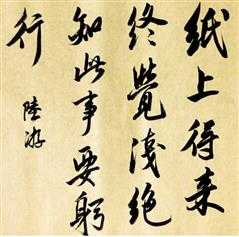 纸上得来
终覺浅绝
知此事要躬
行
陸游